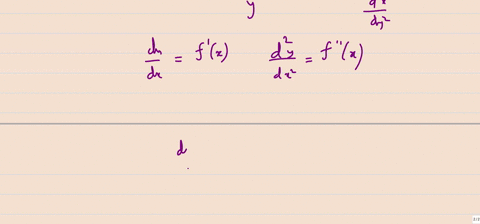 y d²x/dy²
dy/dx = f'(x) d²y/dx² = f''(x)
d